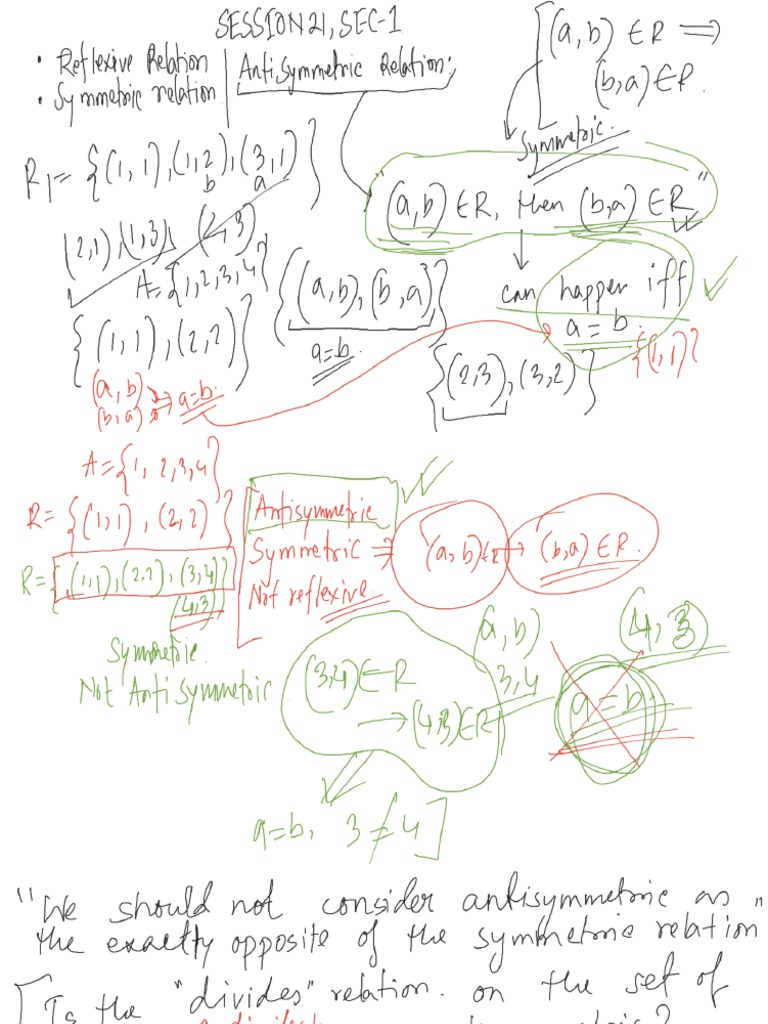 SESSION 21, SEC-1
• Reflexive Relation
• Symmetric relation
AntiSymmetric Relation:
(a, b) ∈ R ⇒
(b, a) ∈ R.
Symmetric.
R1 = {(1, 1), (1, 2), (3, 1)}
b a
"(a, b) ∈ R, then (b, a) ∈ R"
(2,1), (1,3), (2,3)
A = {1, 2, 3, 4}
{(a, b), (b, a)}
a = b.
can happen iff
a = b.
{(1, 1)}
{(1, 1), (2, 2)}
{(2, 3), (3, 2)}
(a, b)
(b, a)
⇒ a = b.
A = {1, 2, 3, 4}
R = {(1, 1), (2, 2)}
R = {(1, 1), (2, 2), (3, 4)}
(4, 3)
Symmetric.
Not Anti Symmetric
Antisymmetric
Symmetric ⇒ (a, b) ∈ R → (b, a) ∈ R.
Not reflexive.
(a, b)
3, 4
(4, 3)
(3, 4) ∈ R
→ (4, 3) ∈ R
a = b
a = b, 3 ≠ 4]
"We should not consider antisymmetric as
the exactly opposite of the symmetric relation"
[Is the "divides" relation. on the set of